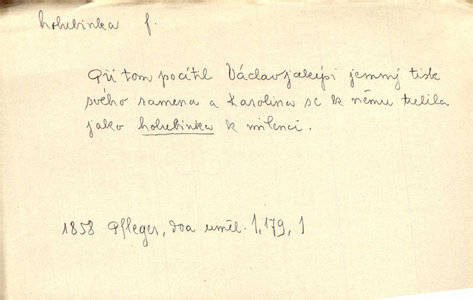 holubinka f.
Při tom pocítil Václav jakýsi jemný tisk
svého ramena a Karolina se k němu tulila
jako holubinka k milenci.
1858 Pfleger, Dva uměl. 1,179,1